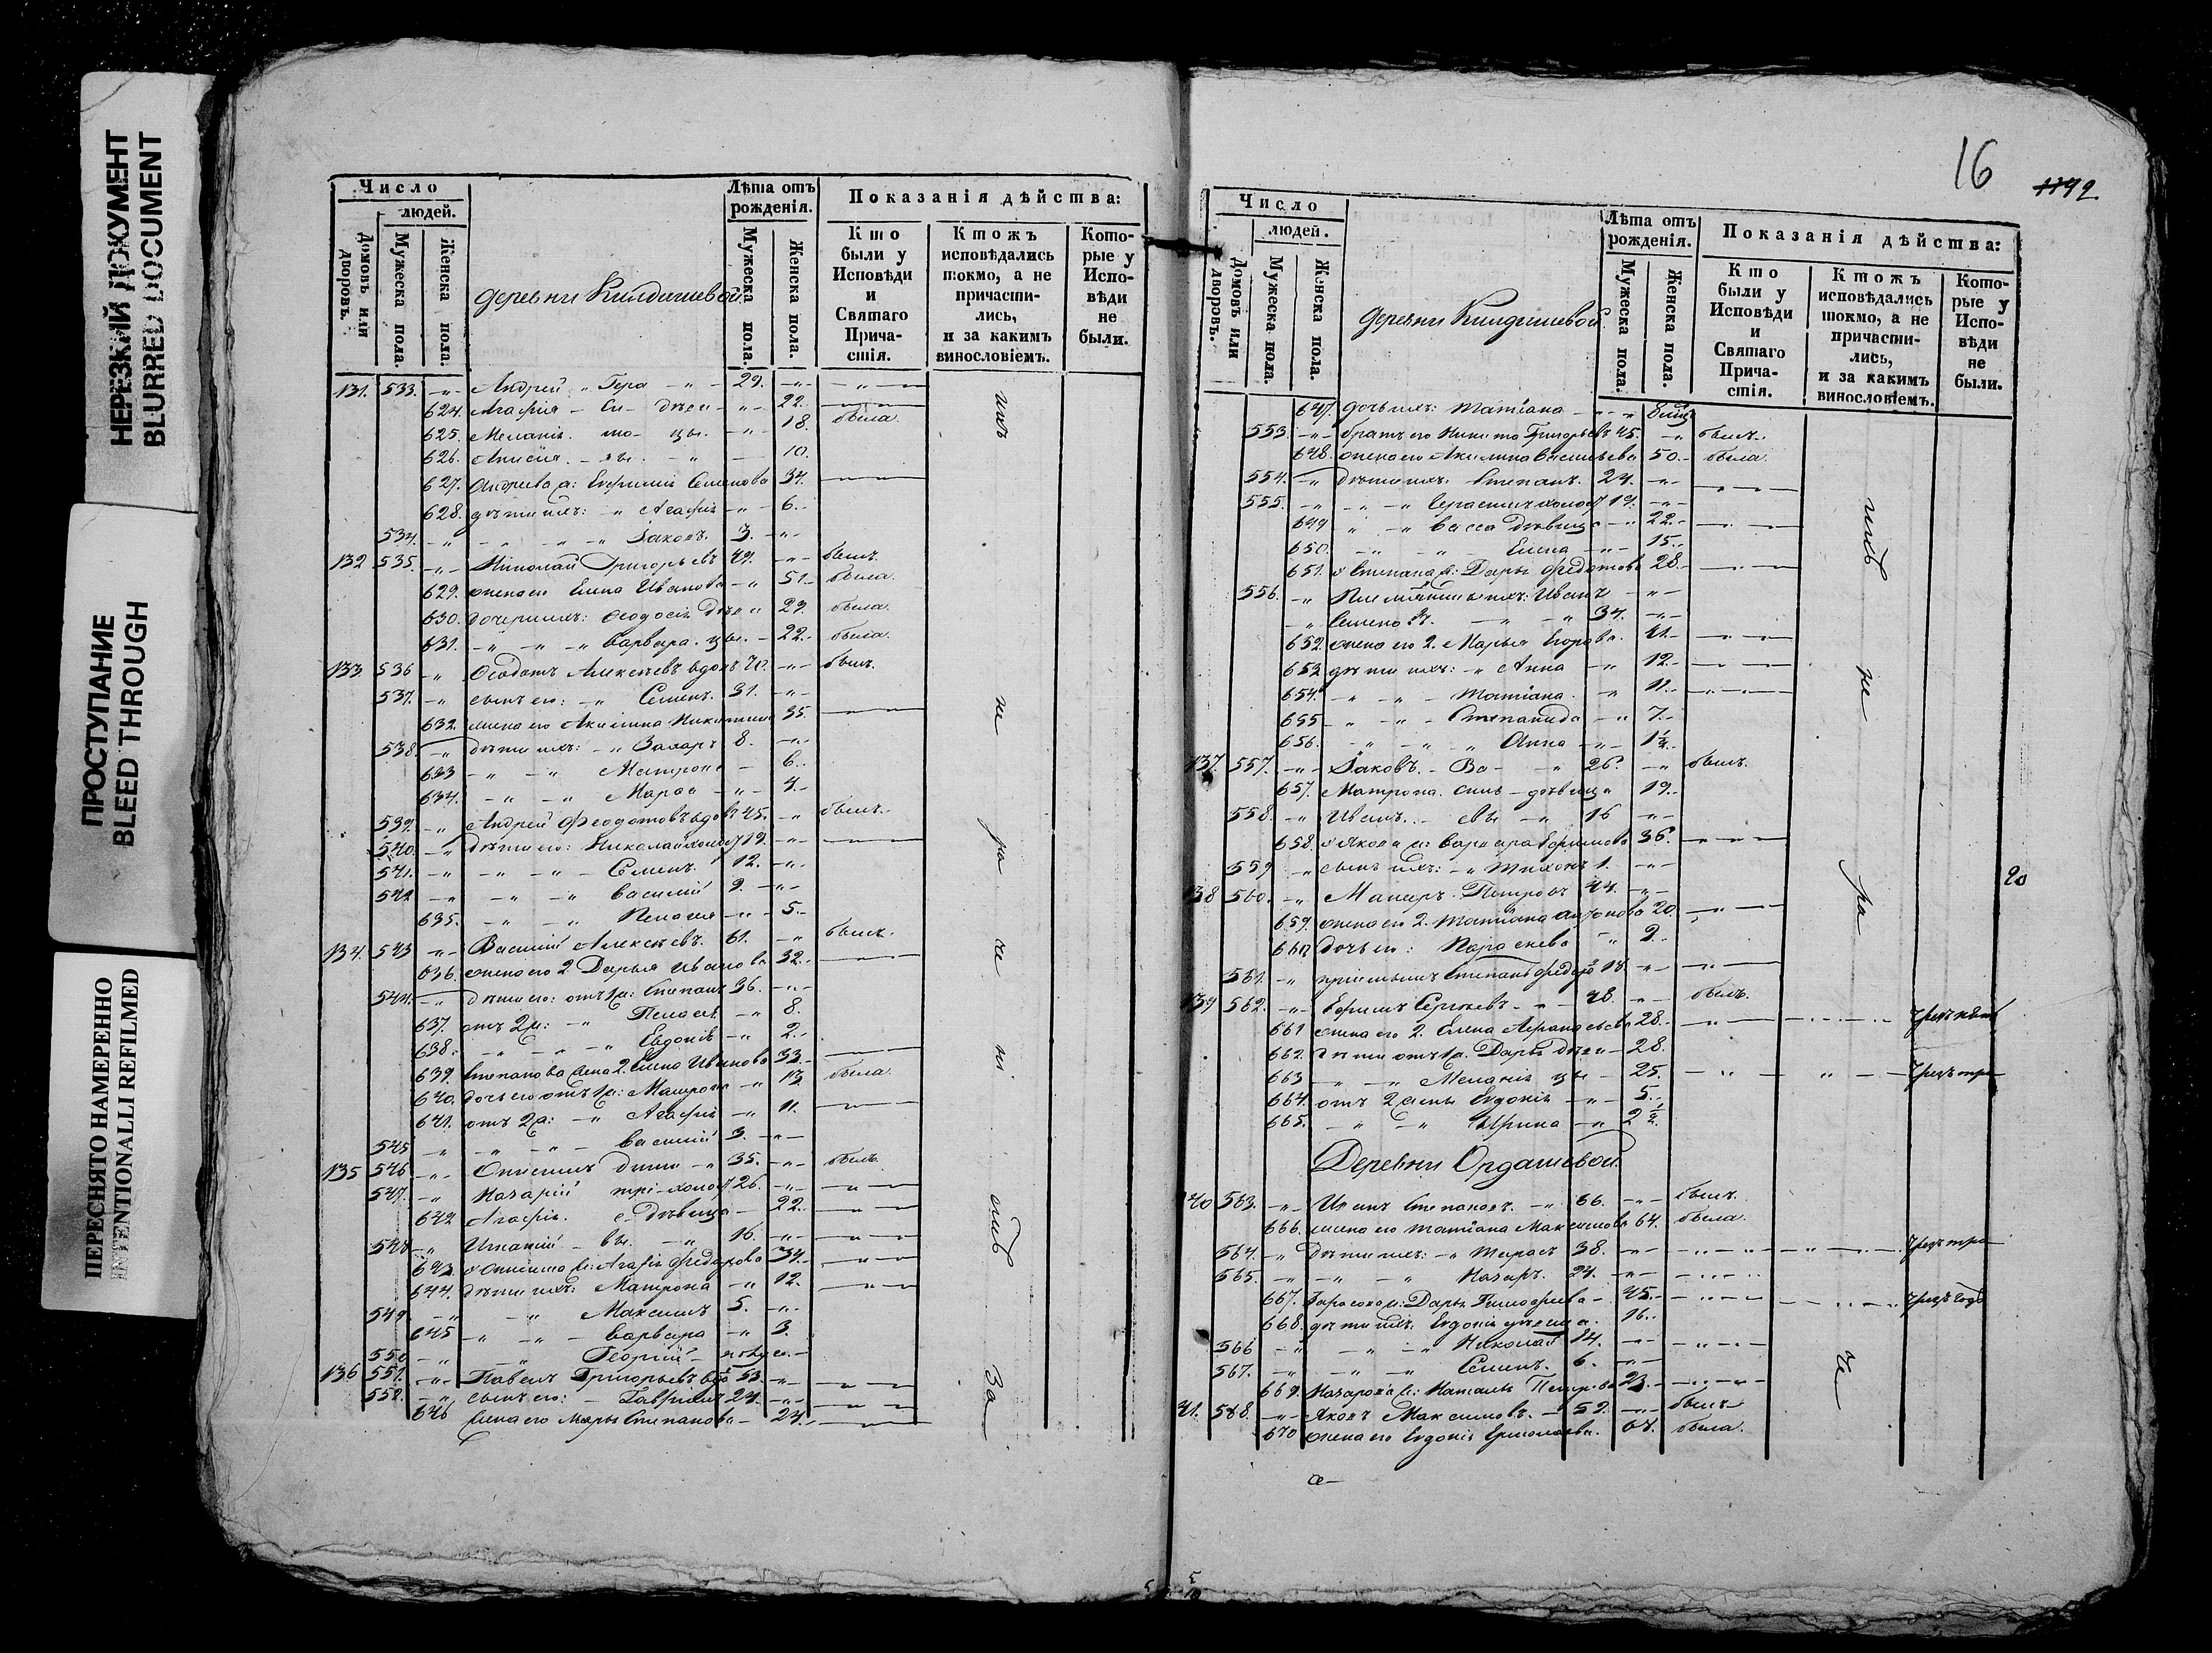 НЕРЕЗКИЙ ДОКУМЕНТ
BLURRED DOCUMENT
ПРОСТУПАНИЕ
BLEED THROUGH
ПЕРЕСНЯТО НАМЕРЕННО
INTENTIONALLI REFILMED
Число
людей.
Домовъ или дворовъ.
Мужеска пола.
Женска пола.
деревни Килдишевой.
Лѣта отъ рожденія.
Мужеска пола.
Женска пола.
Показанія дѣйства:
Кто были у Исповѣди и Святаго Прича-стія.
Ктожъ исповѣдались токмо, а не причасти-лись, и за какимъ винословіемъ.
Кото-рые у Испо-вѣди не были.
131. 533. Андрей Гера 29.
624. Агафія Си- дѣви 22.
625. Меланія. мо- цы. 18. была.
626. Анисія. вы. 10.
627. Андреева ж: Евфимія Семенова 34.
628. дѣти ихъ: Агафія 6.
534. Іаковъ. 3.
132 535. Николай Григорьевъ 49. былъ.
629. жена его Елена Иванова 51. была.
630. дочери ихъ: Ѳеодосія дѣви 29 была.
631. Варвара. цы. 22. была.
133. 536 Ѳеодотъ Алексѣевъ вдовъ 70. былъ.
537. сынъ его: Семенъ. 31.
632. жена его Акилина Никитина 35.
538. дѣти ихъ: Захаръ 8.
633 Матрона 6.
634. Марѳа 4.
539. Андрей Ѳеодотовъ вдовъ 45. былъ.
540. дѣти его: Николай холос 19.
541. Семенъ. 12.
542 Василій 9.
635. Пелагея 5.
134. 543 Василій Алексѣевъ. 61. былъ.
636. жена его 2 Дарья Иванова 32.
544. дѣти его: отъ 1ж: Степанъ 36.
637. отъ 2ж: Пелагія 8.
638. Евдокія 2.
639. Степанова жена 2. Елена Иванова 33.
640. дочь его отъ 1ж: Матрона 13 была.
641. отъ 2ж: Агафія 11.
545 Василій 3.
135 546 Онисимъ Дми 35. былъ
547. Назарій трі- холос 26.
642 Агафія. е- дѣвица 22.
548 Игнатій вы. 16.
643 Онисима ж: Агафія Федорова 34.
644. дѣти ихъ: Матрона 12.
549. Максимъ 5.
645 Варвара 3.
550 Георгій полуго.
136 551. Павелъ Григорьевъ вдо 53.
552. сынъ его: Гавріилъ 24.
646 жена его Марья Степанова 24.
ихъ не ра че ні емъ За
16
1192
Число
людей.
Домовъ или дворовъ.
Мужеска пола.
Женска пола.
деревни Килдишевой.
Лѣта отъ рожденія.
Мужеска пола.
Женска пола.
Показанія дѣйства:
Кто были у Исповѣди и Святаго Прича-стія.
Ктожъ исповѣдались токмо, а не причасти-лись, и за какимъ винословіемъ.
Кото-рые у Испо-вѣди не были.
647. дочь ихъ: Татіана
553. братъ его Никита Григорьевъ 45. былъ.
648. жена его Акилина Васильева 50. была.
554. дѣти ихъ: Степанъ. 24.
555. Герасимъ холос 19.
649 Васса дѣвица 22.
650. Елена 15.
651. Степана ж: Дарья Федотова 28.
556. Племянники ихъ: Иванъ
Семенъ. 34.
652 жена его 2. Марья Егорова. 41.
653 дѣти ихъ: Анна 12.
654. Татіана. 11.
655 Степанида 7.
656. Анна 1½.
137. 557. Іаковъ. Ва- 26. былъ.
657. Матрона. силь- дѣвица 19.
558. Иванъ. евы 16
658. Якова ж: Варвара Ефимова 36.
559 сынъ ихъ: Тихонъ 1.
138 560. Макаръ. Петровъ 44.
659. жена его 2. Татіана 20.
660 дочь его: Параскева 2.
561. пріемышъ Степанъ Федоро 18
139 562. Ефимъ Сергѣевъ 48. былъ.
661 жена его 2. Елена Аѳанасьева 28.
662. дѣти отъ 1ж. Дарья дѣви 28.
663 Меланія цы 25. чрезъ три
664. отъ 2 жены Евдокія 5.
665. Ирина 2½.
Деревни Ордашевой.
140 563. Иванъ Степановъ. 66. былъ.
666. жена его Татіана Максимова 64. была.
564. дѣти ихъ: Тарасъ 38. чрезъ три
565. Назаръ. 24.
667. Тарасова ж: Дарья Тимофеева 45. чрезъ годъ
668. дѣти ихъ: Евдокія дѣвица. 16.
566 Николай 14.
567. Семенъ. 6.
669. Назарова ж: Наталья Петрова 23.
41. 568. Яковъ Максимовъ. 59. былъ
670 жена его Евдокія Ермолаева. 67. была.
не ра че
20